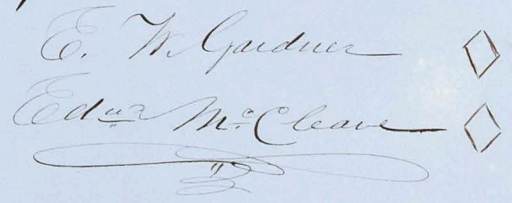 E. W. Gardner
Edwd McCleave